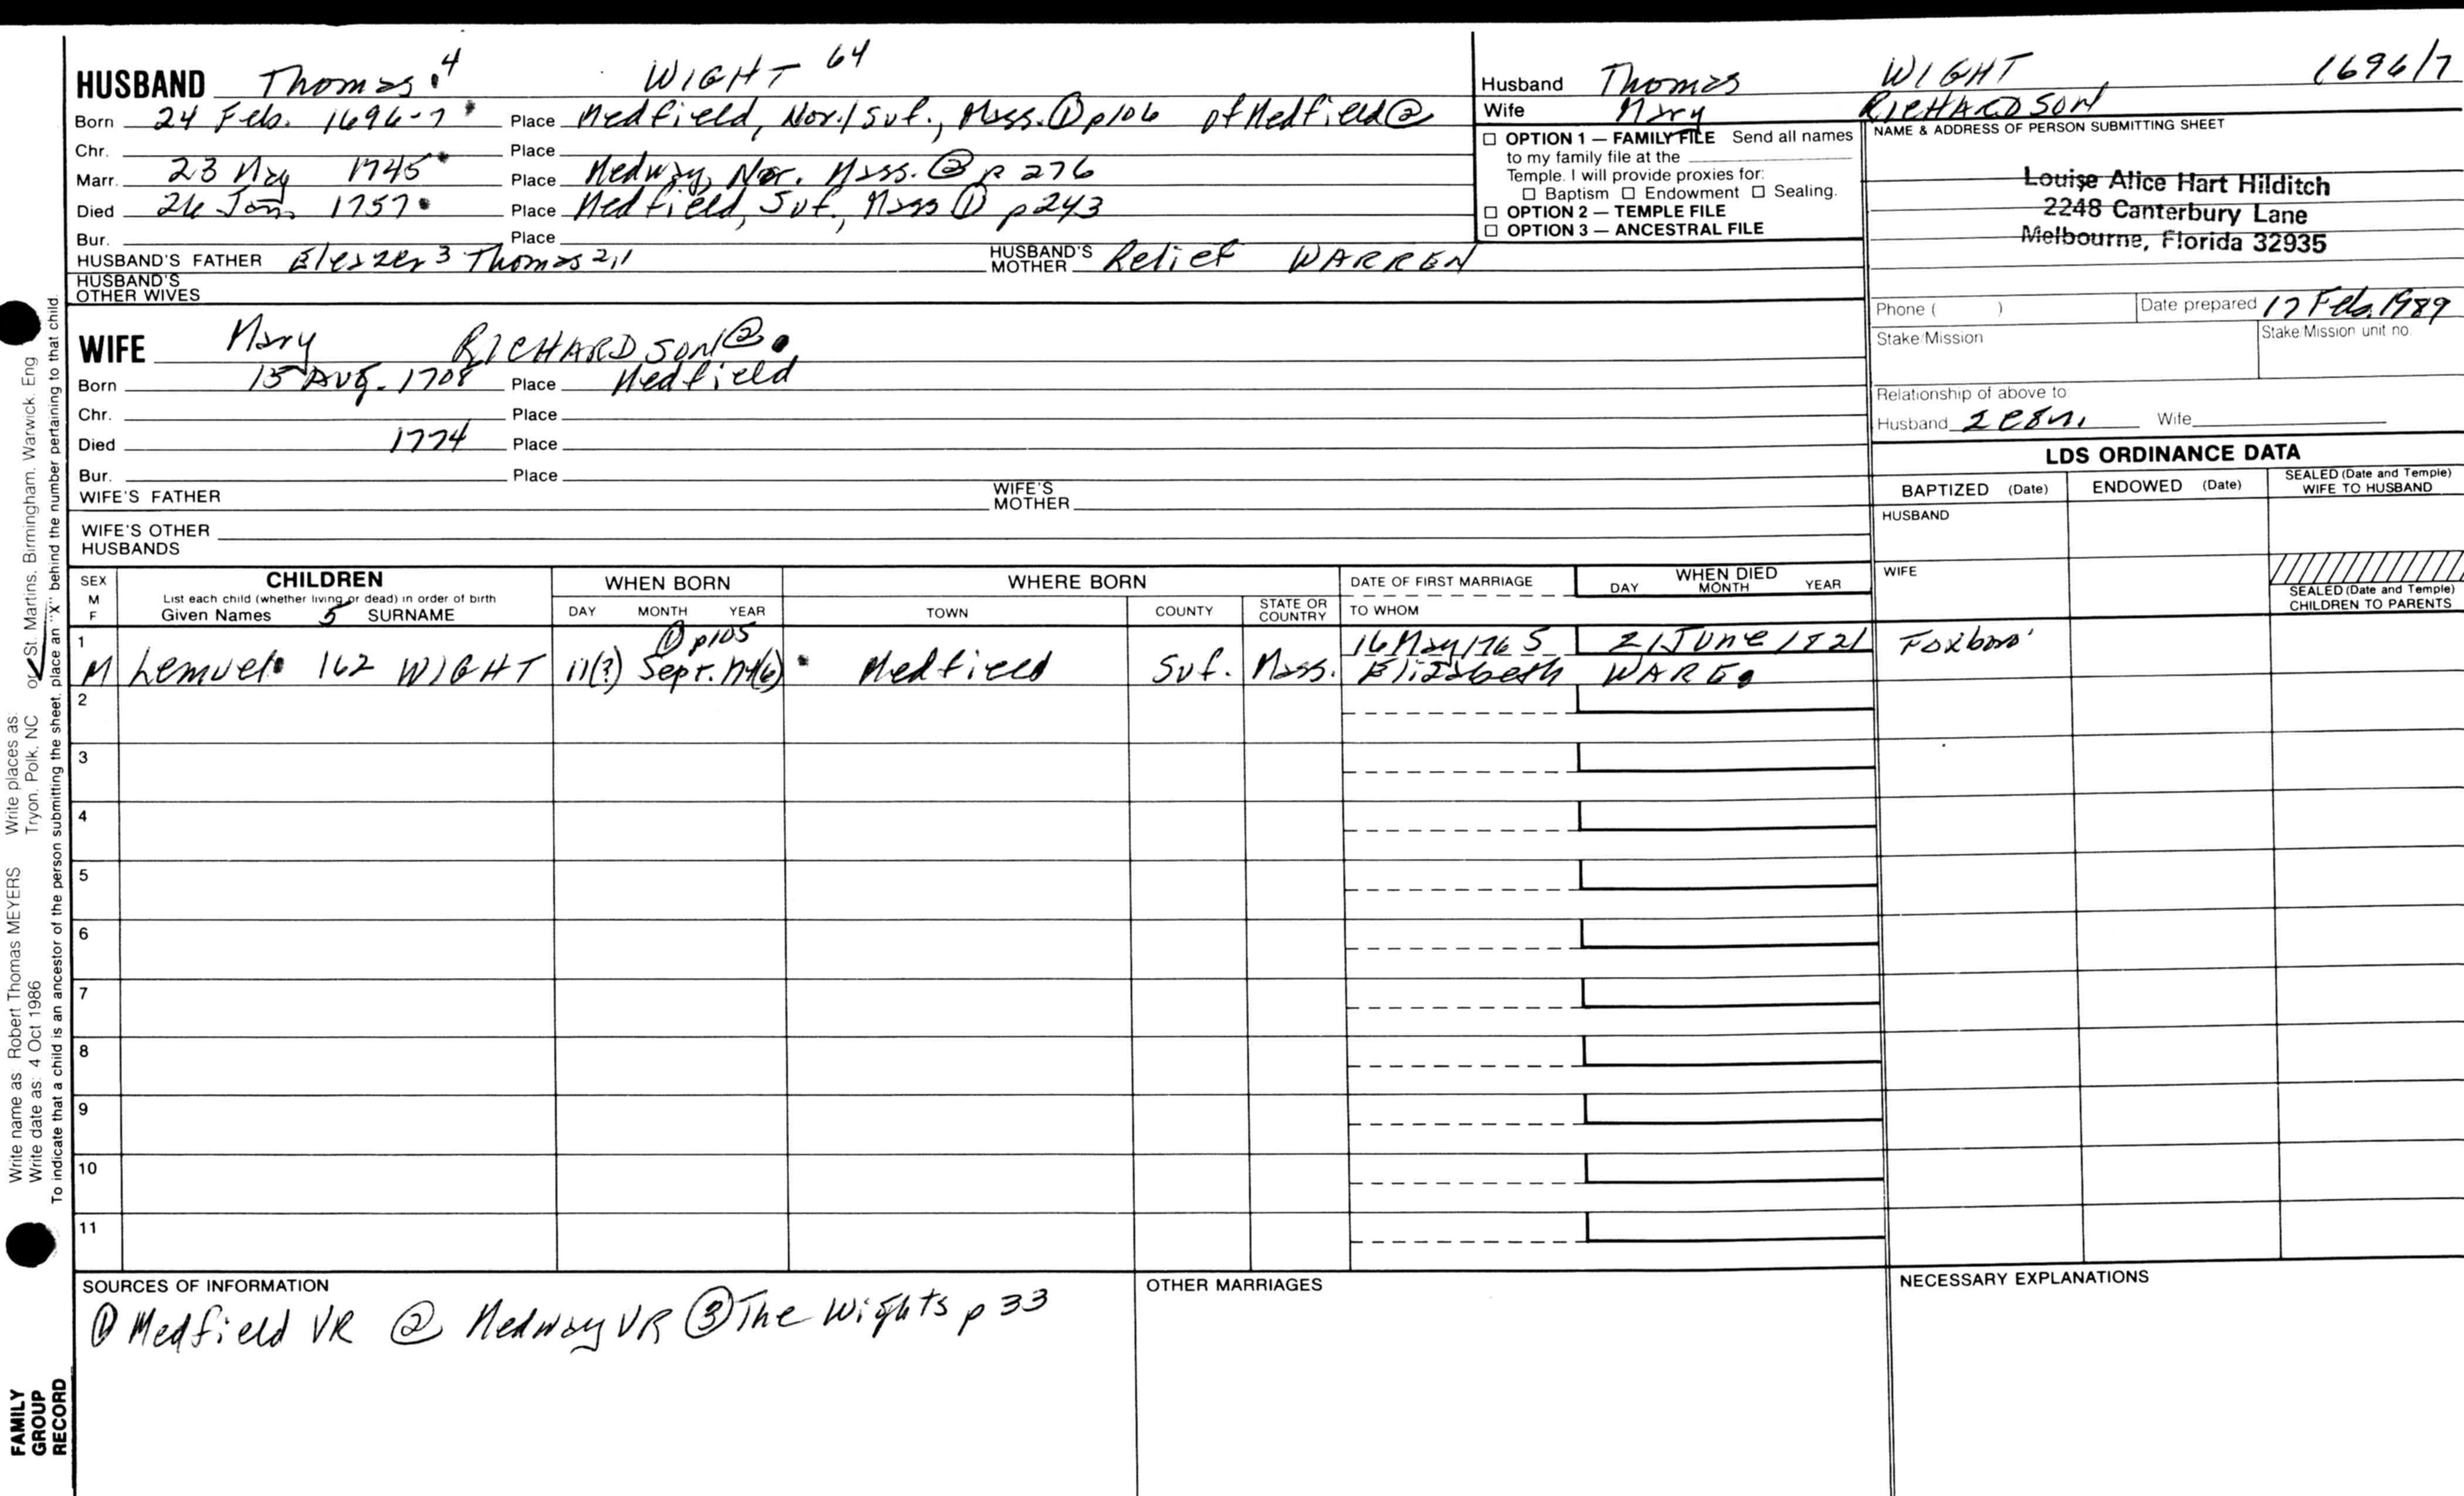 HUSBAND Thomas 4 WIGHT 64
Born 24 Feb. 1696-7 Place Medfield, Nor./Suf., Mass. ① p106 of Medfield ②
Chr. Place
Marr. 23 May 1745 Place Medway, Nor. Mass. ② p 276
Died 26 Jan. 1757 Place Medfield, Suf., Mass ① p243
Bur. Place
HUSBAND'S FATHER Eleazer 3 Thomas 2,1 HUSBAND'S MOTHER Relief WARREN
HUSBAND'S OTHER WIVES
Husband Thomas WIGHT 1696/7
Wife Mary RICHARDSON
☐ OPTION 1 — FAMILY FILE Send all names
to my family file at the
Temple. I will provide proxies for:
☐ Baptism ☐ Endowment ☐ Sealing.
☐ OPTION 2 — TEMPLE FILE
☐ OPTION 3 — ANCESTRAL FILE
NAME & ADDRESS OF PERSON SUBMITTING SHEET
Louise Alice Hart Hilditch
2248 Canterbury Lane
Melbourne, Florida 32935
Phone ( ) Date prepared 17 Feb. 1989
Stake/Mission Stake/Mission unit no.
Relationship of above to:
Husband Wife
WIFE Mary RICHARDSON ②
Born 15 Aug. 1708 Place Medfield
Chr. Place
Died 1774 Place
Bur. Place
WIFE'S FATHER WIFE'S MOTHER
WIFE'S OTHER HUSBANDS
LDS ORDINANCE DATA
BAPTIZED (Date) ENDOWED (Date) SEALED (Date and Temple) WIFE TO HUSBAND
HUSBAND
WIFE
SEALED (Date and Temple) CHILDREN TO PARENTS
SEX M F
CHILDREN
List each child (whether living or dead) in order of birth
Given Names 5 SURNAME
WHEN BORN
DAY MONTH YEAR
WHERE BORN
TOWN COUNTY STATE OR COUNTRY
DATE OF FIRST MARRIAGE
TO WHOM
WHEN DIED
DAY MONTH YEAR
1 ① p105 16 May 1765 21 June 1821 Foxboro'
M Lemuel 162 WIGHT 11(?) Sept. 174(6) Medfield Suf. Mass. Elizabeth WARE
2
3
4
5
6
7
8
9
10
11
SOURCES OF INFORMATION
① Medfield VR ② Medway VR ③ The Wights p 33
OTHER MARRIAGES
NECESSARY EXPLANATIONS
Write name as: Robert Thomas MEYERS Write places as:
Write date as: 4 Oct 1986 Tryon, Polk, NC or St. Martins, Birmingham, Warwick, Eng
To indicate that a child is an ancestor of the person submitting the sheet, place an "X" behind the number pertaining to that child
FAMILY
GROUP
RECORD